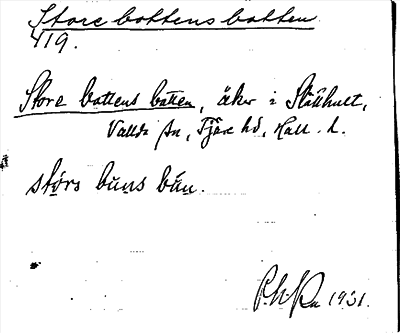 Store bottens botten.
419.
Store bottens botten, åker i Ställhult,
Vallda sn, Fjäre hd, Hall. l.
størs buns bun.
1931.